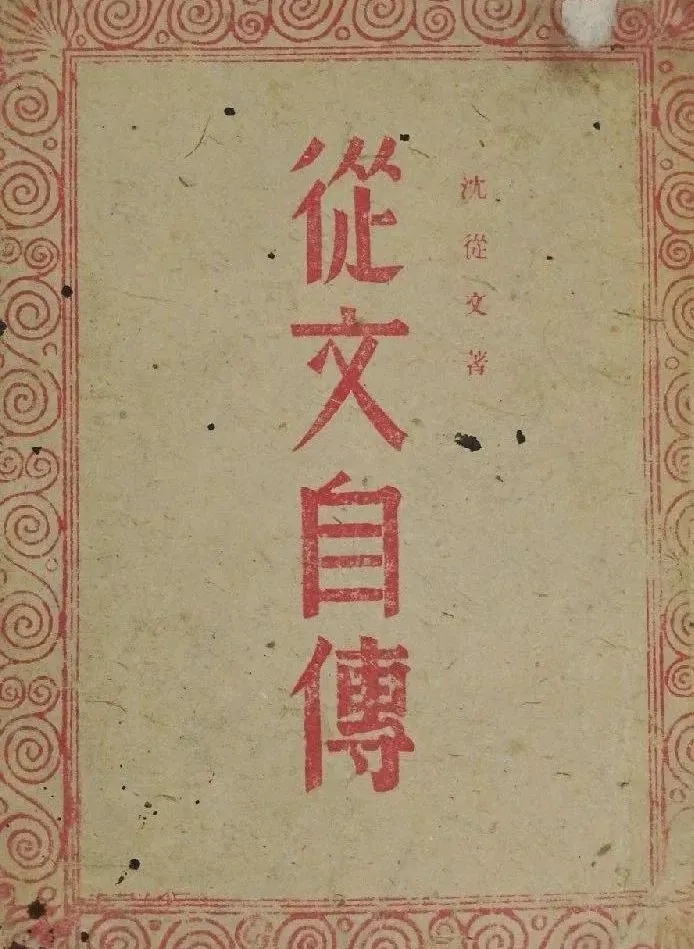 沈從文著
從文自傳